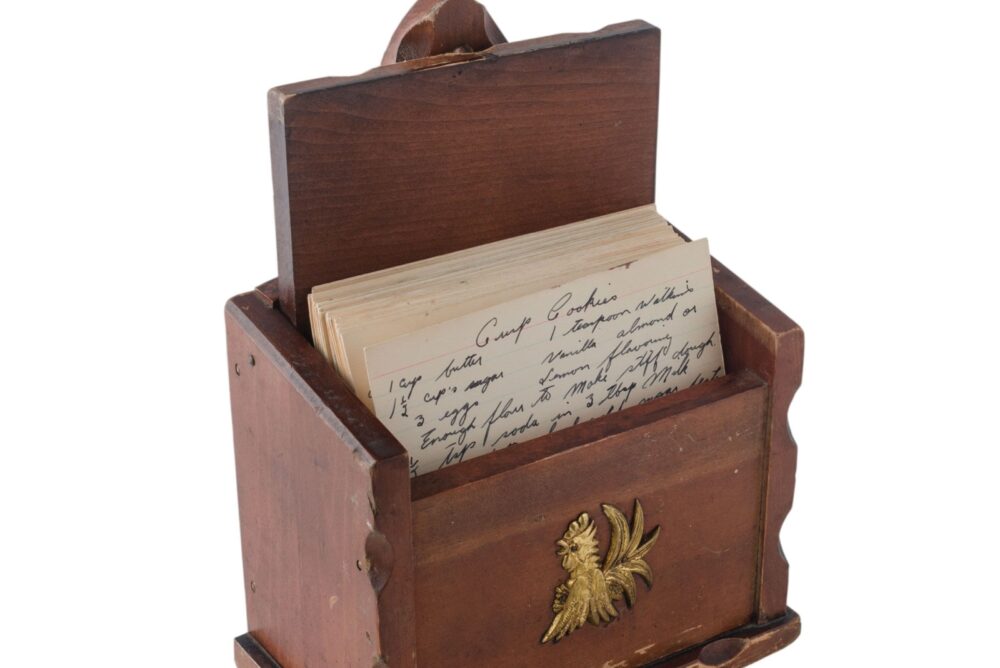 Crisp Cookies
1 cup butter 1 teaspoon Watkins
1 1/2 cup's sugar Vanilla almond or
3 eggs Lemon flavouring
Enough flour to make stiff dough.
1/2 tsp soda in 3 tbsp Milk